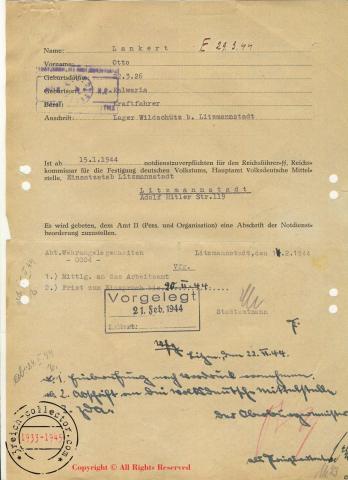 Name: Lankert E 29.3.44
Vorname: Otto
Geburtsdatum: 22.3.26
Geburtsort: Kalwaria
Beruf: Kraftfahrer
Anschrift: Lager Wildschütz b. Litzmannstadt
Ist ab 15.1.1944 notdienstzuverpflichten für den Reichsführer-SS, Reichs-
kommissar für die Festigung deutschen Volkstums, Hauptamt Volksdeutsche Mittel-
stelle, Einsatzstab Litzmannstadt
Litzmannstadt
Adolf Hitler Str.119
Es wird gebeten, dem Amt II (Pers. und Organisation) eine Abschrift der Notdienst-
beorderung zuzustellen.
Abt.Wehrangelegenheiten Litzmannstadt,den 2.1944
- 0004 -
Vfg.
1.) Mittlg. an das Arbeitsamt
2.) Frist zum Einspruch bis 20.II.44
Vorgelegt
21. Feb. 1944
Stadtamtmann
den 22.II.44
1.
2. Abschrift an die Volksdeutsche Mittelstelle
der Oberbürgermeister
3reich-collector.com
1933-1945
Copyright © All Rights Reserved